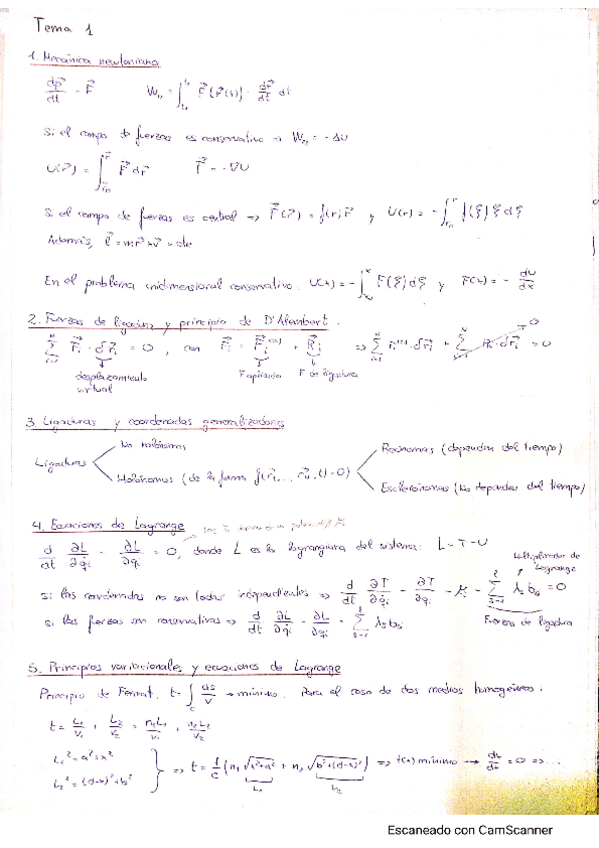 Tema 1
1. Mecánica newtoniana
dp⃗/dt = F⃗    W₁₂ = ∫ F⃗(r⃗(t)) · dr⃗/dt dt
Si el campo de fuerzas es conservativo → W₁₂ = -ΔU
U(r⃗) = ∫ F⃗ dr⃗    F⃗ = -∇U
Si el campo de fuerzas es central => F⃗(r⃗) = f(r) r⃗ y U(r) = -∫ f(ξ) ξ dξ
Además, ℓ⃗ = mr⃗ × v⃗ = cte
En el problema unidimensional conservativo: U(x) = -∫ F(ξ) dξ y F(x) = - dU/dx
2. Fuerzas de ligadura y principio de D'Alembert.
Σ F⃗ᵢ · δr⃗ᵢ = 0, con F⃗ᵢ = F⃗ᵢ + R⃗ᵢ => Σ δr⃗ᵢ + Σ Rᵢ · δr⃗ᵢ = 0
desplazamiento virtual    F aplicada    F de ligadura
3. Ligaduras y coordenadas generalizadas
Ligaduras
No holónomas
Holónomas (de la forma f(r⃗₁, ... r⃗ₙ, t) = 0)
Reónomas (dependen del tiempo)
Esclerónomas (No dependen del tiempo)
4. Ecuaciones de Lagrange
d/dt ∂L/∂q̇ᵢ - ∂L/∂qᵢ = 0, donde L es la lagrangiana del sistema: L = T - U
Multiplicador de Lagrange
si las coordenadas no son todas independientes => d/dt ∂T/∂q̇ᵢ - ∂T/∂qᵢ - Σ λ = 0
Fuerzas de ligadura
si las fuerzas son conservativas => d/dt ∂L/∂q̇ᵢ - ∂L/∂qᵢ = Σ λ
5. Principios variacionales y ecuaciones de Lagrange
Principio de Fermat. t = ∫ ds/v → mínimo. Para el caso de dos medios homogéneos.
t = L₁/v₁ + L₂/v₂ = n₁L₁/ + n₂L₂/
L₁² = a² + x²
L₂² = (d-x)² + b²
=> t = 1/c (n₁ √x²+a² + n₂ √b²+(d-x)²) => t(x) mínimo → = 0 => ...
L₁    L₂
Escaneado con CamScanner